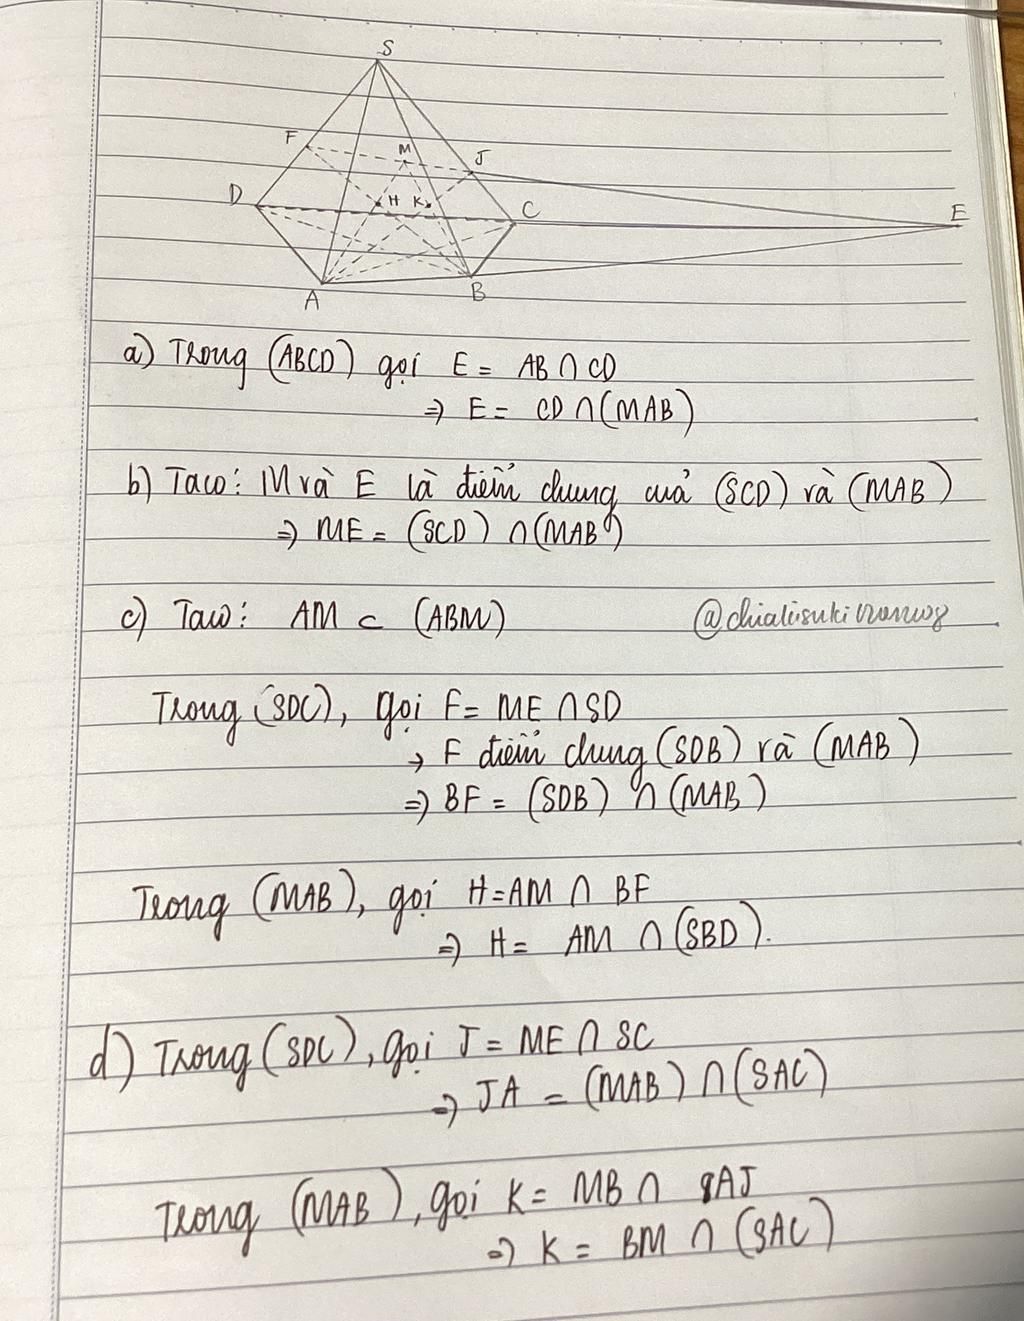 S
F
M
J
D
H
K
C
E
A
B
a) Trong (ABCD) gọi E = AB ∩ CD
⇒ E = CD ∩ (MAB)
b) Taco: M và E là điểm chung của (SCD) và (MAB)
⇒ ME = (SCD) ∩ (MAB)
c) Taco: AM ⊂ (ABM)
Trong (SDC), gọi F = ME ∩ SD
→ F điểm chung (SDB) và (MAB)
⇒ BF = (SDB) ∩ (MAB)
Trong (MAB), gọi H = AM ∩ BF
⇒ H = AM ∩ (SBD).
d) Trong (SDC), gọi J = ME ∩ SC
⇒ JA = (MAB) ∩ (SAC)
Trong (MAB), gọi K = MB ∩ AJ
⇒ K = BM ∩ (SAC)